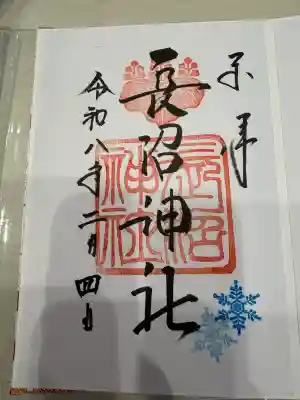 奉拝
長沼神社
長沼神社
令和八年二月四日